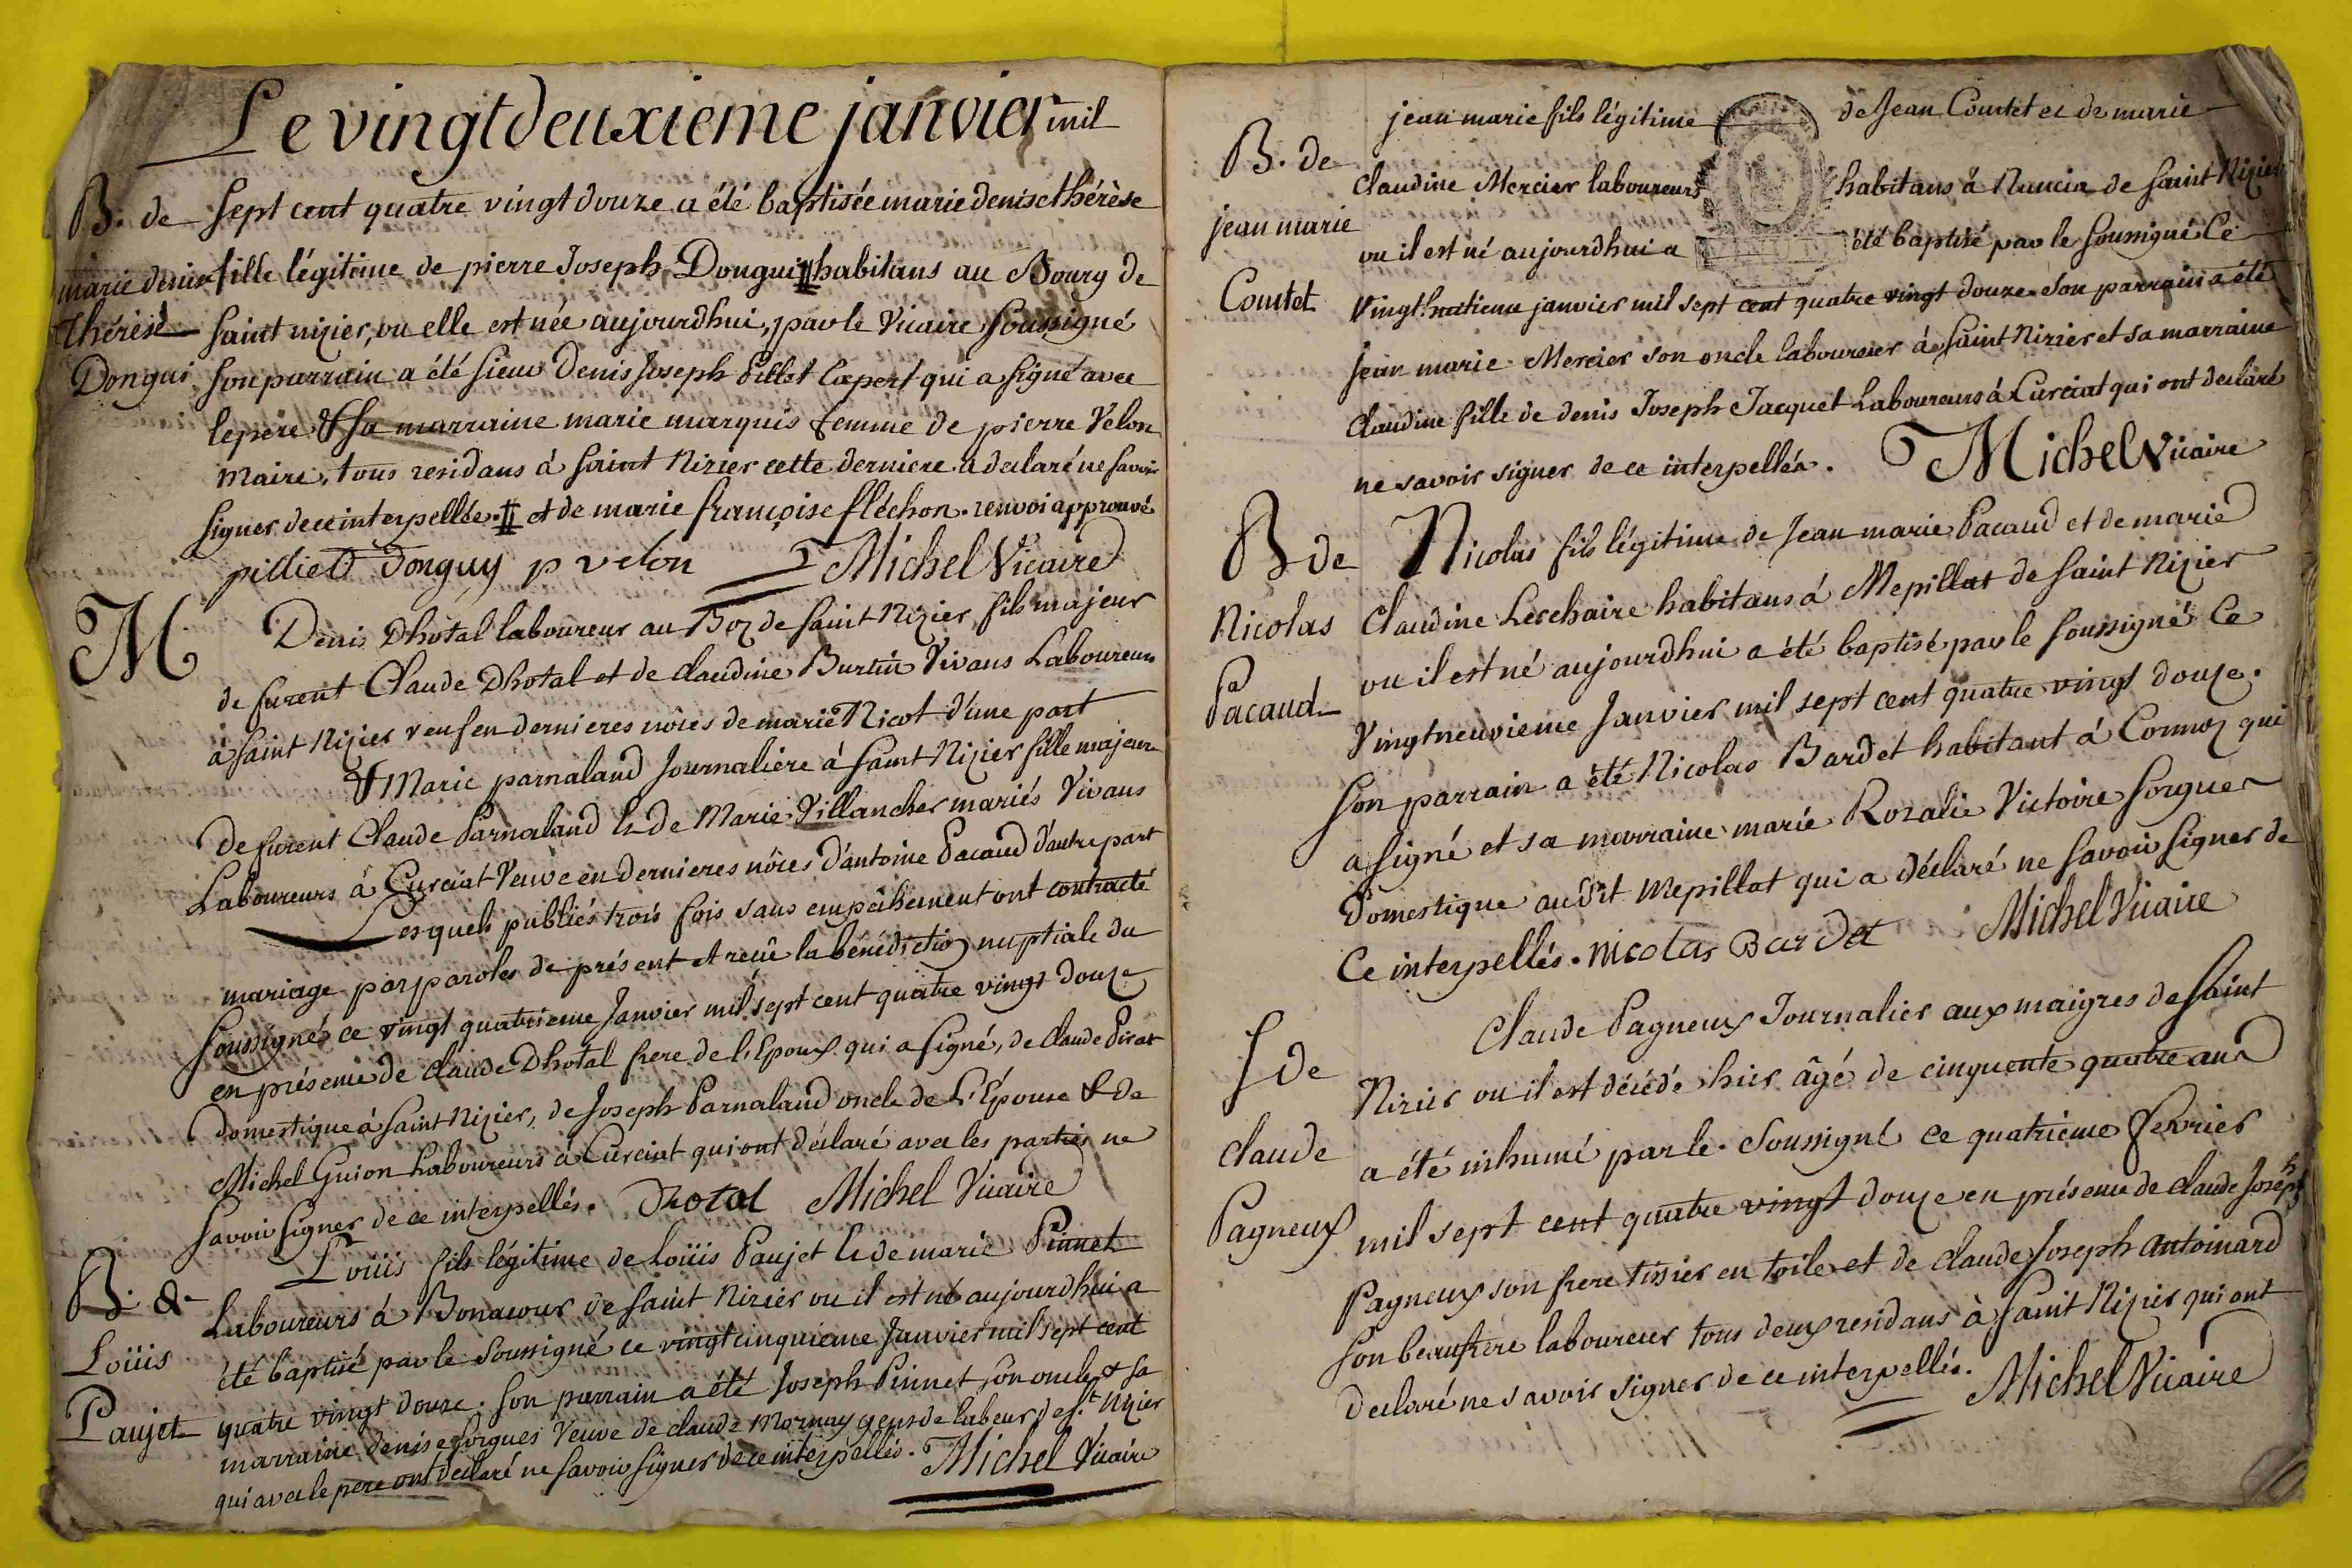 Le vingtdeuxieme janvier mil
B. de
sept cent quatre vingt douze a été baptisée marie denise thérèse
marie denise
fille légitime de pierre Joseph Dongui ╫ habitans au Bourg de
thérèse
saint nizier, ou elle est née aujourdhui, par le Vicaire soussigné
Dongui
son parrain a été sieur Denis Joseph Pillet Expert qui a signé avec
le pere & sa marraine marie marquis femme de pierre Velon
maire, tous residans à saint Nizier cette derniere a declaré ne savoir
signer de ce interpellée. ╫ et de marie françoise fléchon. renvoi approuvé
pilliet Donguy p velon Michel Vicaire
M
Denis Dhotal laboureur au Boz de saint Nizier, fils majeur
de furent Claude Dhotal et de claudine Burtin Vivans Laboureurs
à saint Nizier veuf en dernieres nôces de marie Nicot d'une part
& Marie parnaland Journaliére à saint Nizier fille majeure
De furent Claude Parnaland & de Marie Villancher mariés Vivans
Laboureurs à Curciat Veuve en dernieres nôces d'antoine Pacaud d'autre part
Lesquels publiés trois fois sans empêchement ont contracté
mariage par paroles de présent et reçu la bénédiction nuptiale du
soussigné ce vingt quatrieme Janvier mil sept cent quatre vingt douze
en présence de claude Dhotal frere de l'Epoux qui a signé, de claude Pirat
domestique à saint Nizier, de Joseph Parnaland oncle de l'Épouse & de
Michel Guion Laboureurs à Curciat qui ont déclaré avec les parties ne
savoir signer de ce interpellés. Dhotal Michel Vicaire
B. de
Loüis fils légitime de Loüis Paujet & de marie Pinnet
Loüis
Laboureurs à Bonacour de saint Nizier ou il est né aujourdhui a
Paujet
été baptisé par le soussigné ce vingtcinquieme Janvier mil sept cent
quatre vingt douze. son parrain a été Joseph Pinnet son oncle & sa
marraine denise sorgues Veuve de claude Mornay gens de labeur de St. Nizier
qui avec le pere ont déclaré ne savoir signer de ce interpellés. Michel Vicaire
B. de
jean marie fils légitime de Jean Courtet et de marie
jean marie
claudine Mercier laboureurs habitans à Nancin de saint Nizier
Courtet
ou il est né aujourdhui a été baptisé par le soussigné Ce
vingt huitieme janvier mil sept cent quatre vingt douze. son parrain a été
jean marie Mercier son oncle laboureur à saint Nizier et sa marraine
claudine fille de denis Joseph Jacquet Laboureurs à Curciat qui ont declaré
ne savoir signer de ce interpellés. Michel Vicaire
B de
Nicolas fils légitime de Jean marie Pacaud et de marie
Nicolas
Claudine Lerchaire habitans à Mepillat de saint Nizier
Pacaud
ou il est né aujourdhui a été baptisé par le soussigné Ce
Vingtneuvieme Janvier mil sept cent quatre vingt douze.
son parrain a été Nicolas Bardet habitant à Cormoz qui
a signé et sa marraine marie Rozalie Victoire sorgues
domestique audit Mepillat qui a déclaré ne savoir signer de
Ce interpellés. nicolas Bardet Michel Vicaire
S de
Claude Pagneux Journalier aux maigres de saint
claude
Nizier ou il est décédé hier âgé de cinquante quatre ans
Pagneux
a été inhumé par le soussigné ce quatrieme fevrier
mil sept cent quatre vingt douze en présence de claude Joseph
Pagneux son frere tissier en toile et de claude Joseph Antoinard
son beaufrere laboureur tous deux residans à saint Nizier qui ont
declaré ne savoir signer de ce interpellés. Michel Vicaire